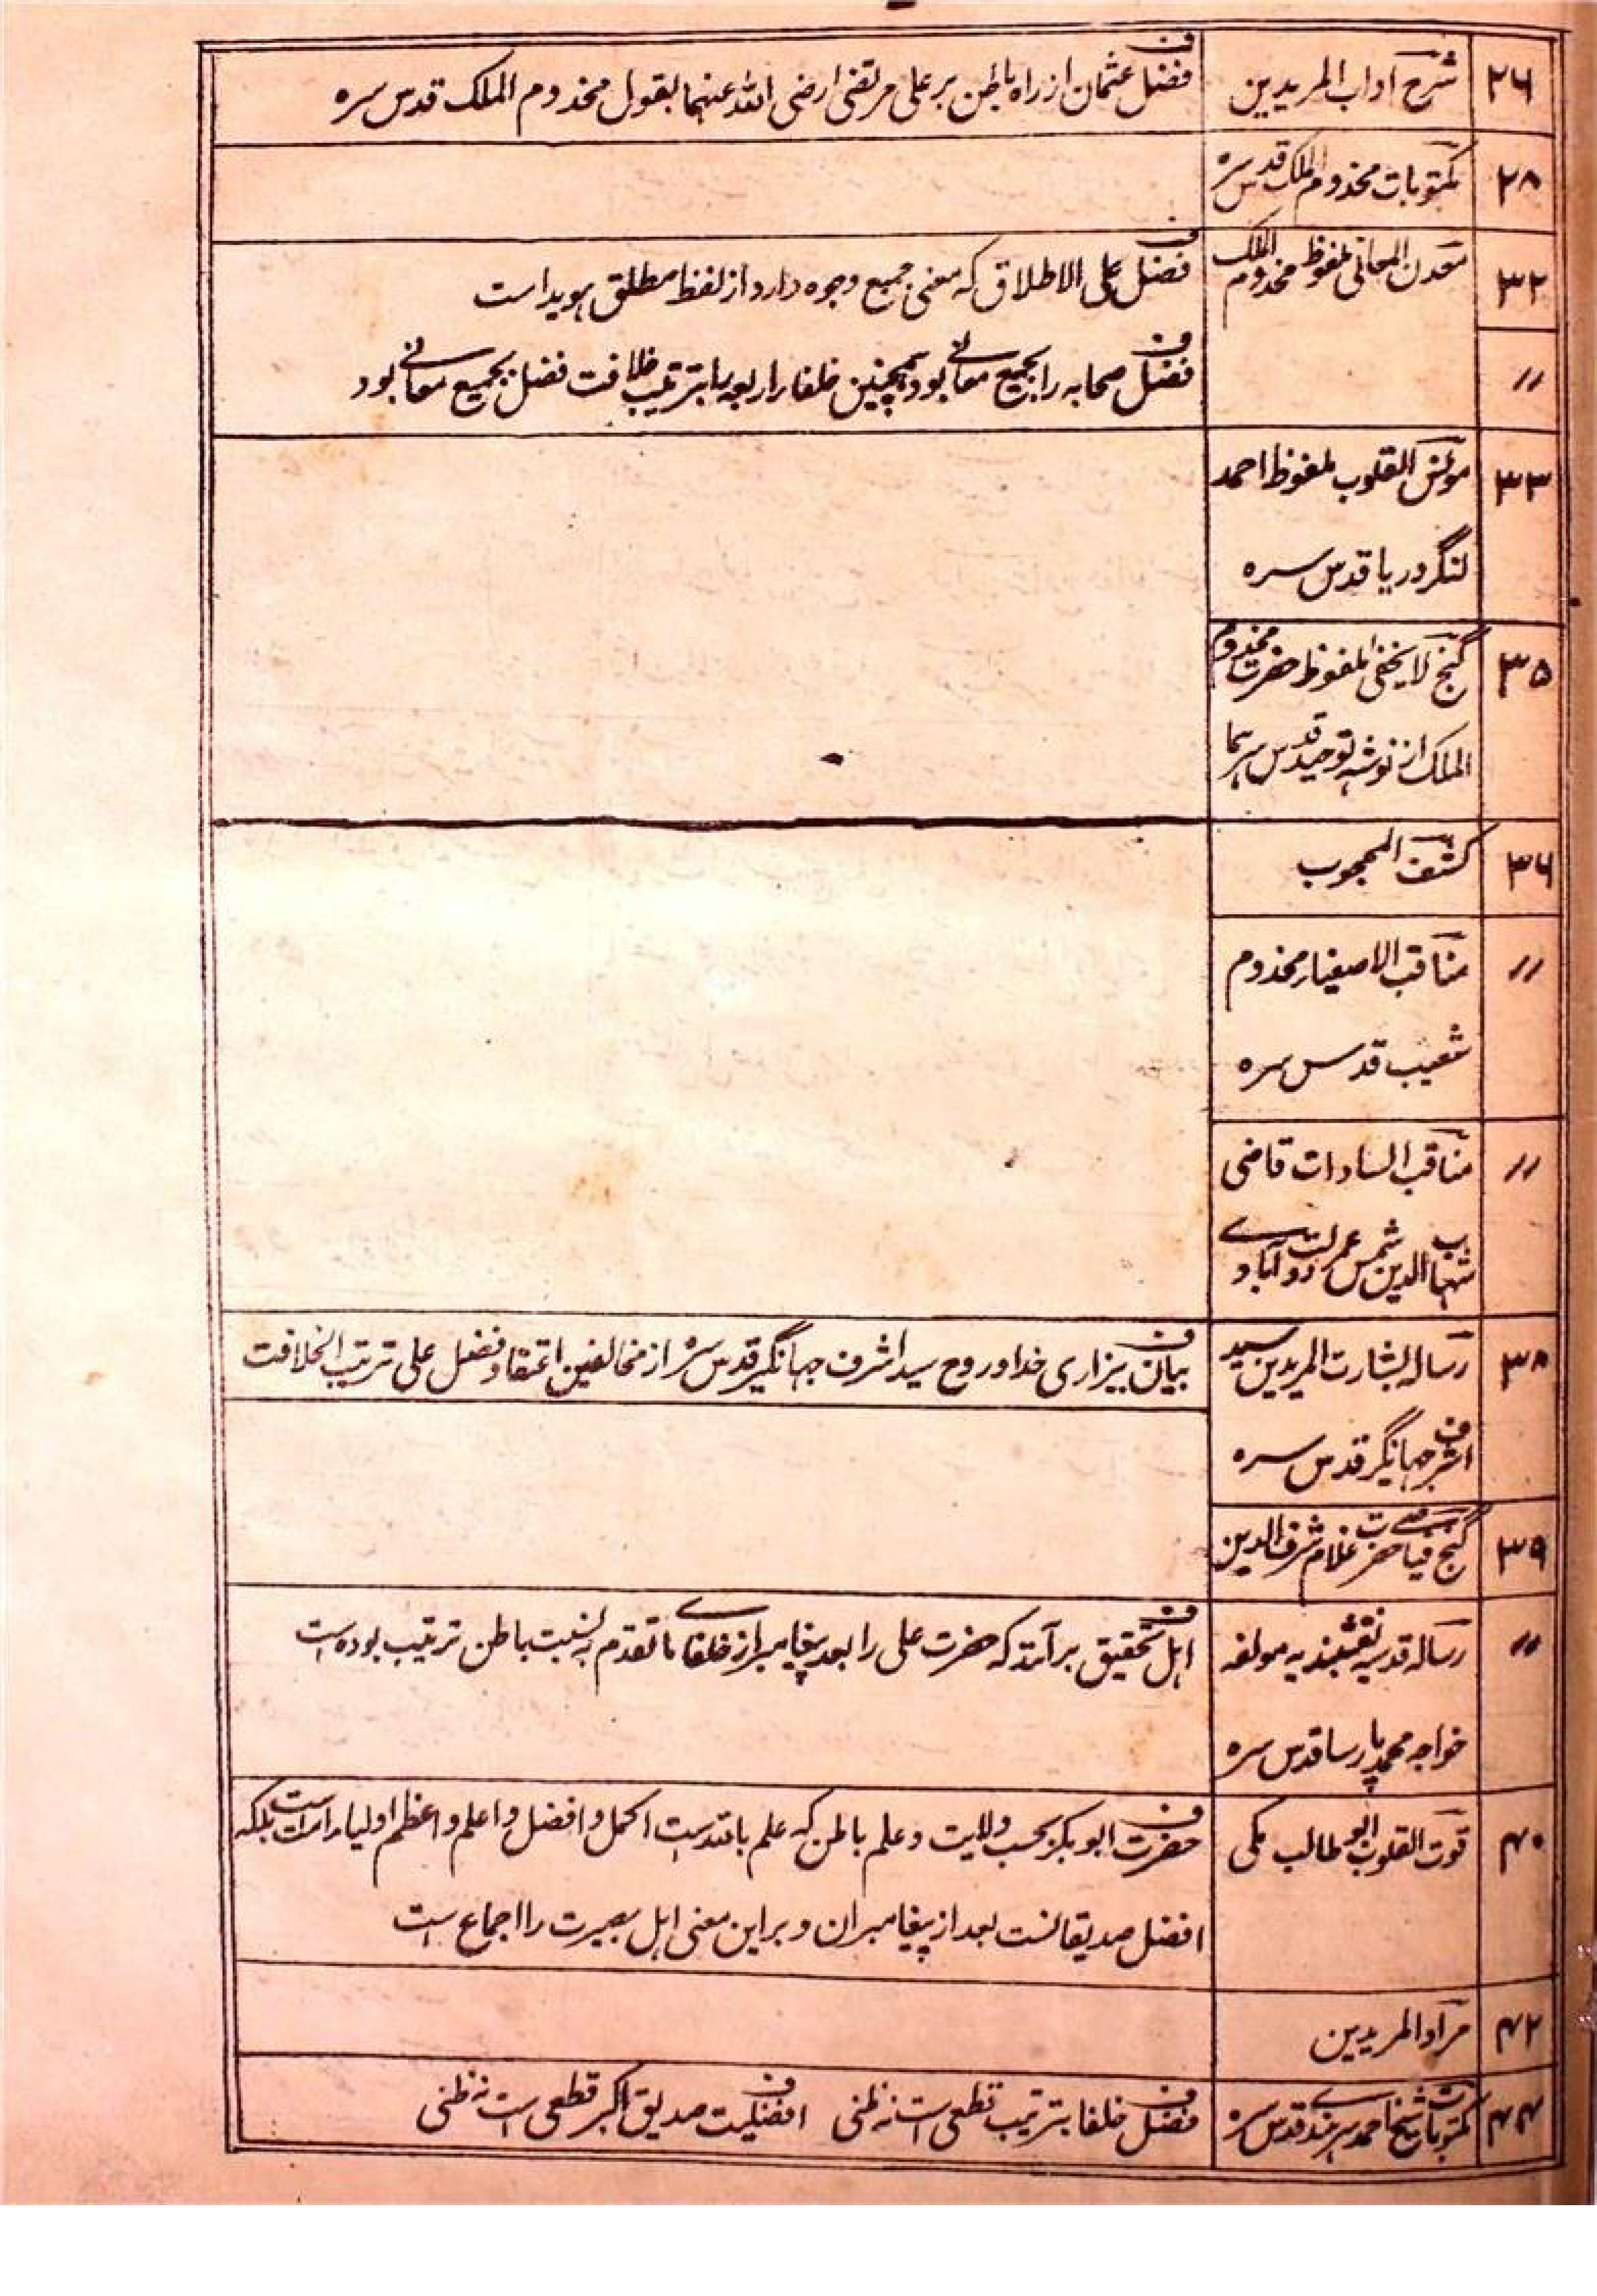 ۲۶ شرح آداب المریدین ف فضل عثمان از راه باطن بر علی مرتضی ارضی الله عنهما بقول مخدوم الملک قدس سره
۲۸ مکتوبات مخدوم الملک قدس سره
۳۲ معدن المعانی ملفوظ مخدوم الملک ف فضل علی الاطلاق که معنی جمیع وجوه دارد از لفظ مطلق هویداست
〃 ف فضل صحابه را بجمیع معانی بود همچنین خلفاء اربعه را بترتیب خلافت فضل بجمیع معانی بود
۳۳ مونس القلوب ملفوظ احمد
لنگر دریا قدس سره
۳۵ گنج لایخفی ملفوظ حضرت مخدوم
الملک از نوشه توحید قدس سرهما
۳۶ کشف المحجوب
〃 مناقب الاصفیاء مخدوم
شعیب قدس سره
〃 مناقب السادات قاضی
شهاب الدین شمس عمر دولت آبادی
۳۸ رساله بشارت المریدین سید ف بیان بیزاری خدا و روح سید اشرف جهانگیر قدس سره از مخالفین اعتقاد فضل علی ترتیب الخلافت
اشرف جهانگیر قدس سره
۳۹ گنج فیاضی حضرت غلام شرف الدین
〃 رساله قدسیه نقشبندیه مولفه ف اهل تحقیق برآنند که حضرت علی را بعد پیغامبر از خلفای ما تقدم به نسبت باطن ترتیب بوده است
خواجه محمد پارسا قدس سره
۴۰ قوت القلوب ابو طالب مکی ف حضرت ابوبکر بحسب ولایت و علم باطن که علم بالله است اکمل و افضل و اعلم و اعظم اولیاء امت است بلکه
افضل صدیقانست بعد از پیغامبران و بر این معنی اهل بصیرت را اجماع است
۴۲ مراد المریدین
۴۴ مکتوبات شیخ احمد سرهندی قدس سره ف فضل خلفا بترتیب قطعی است نه ظنی ف افضلیت صدیق اکبر قطعی است نه ظنی